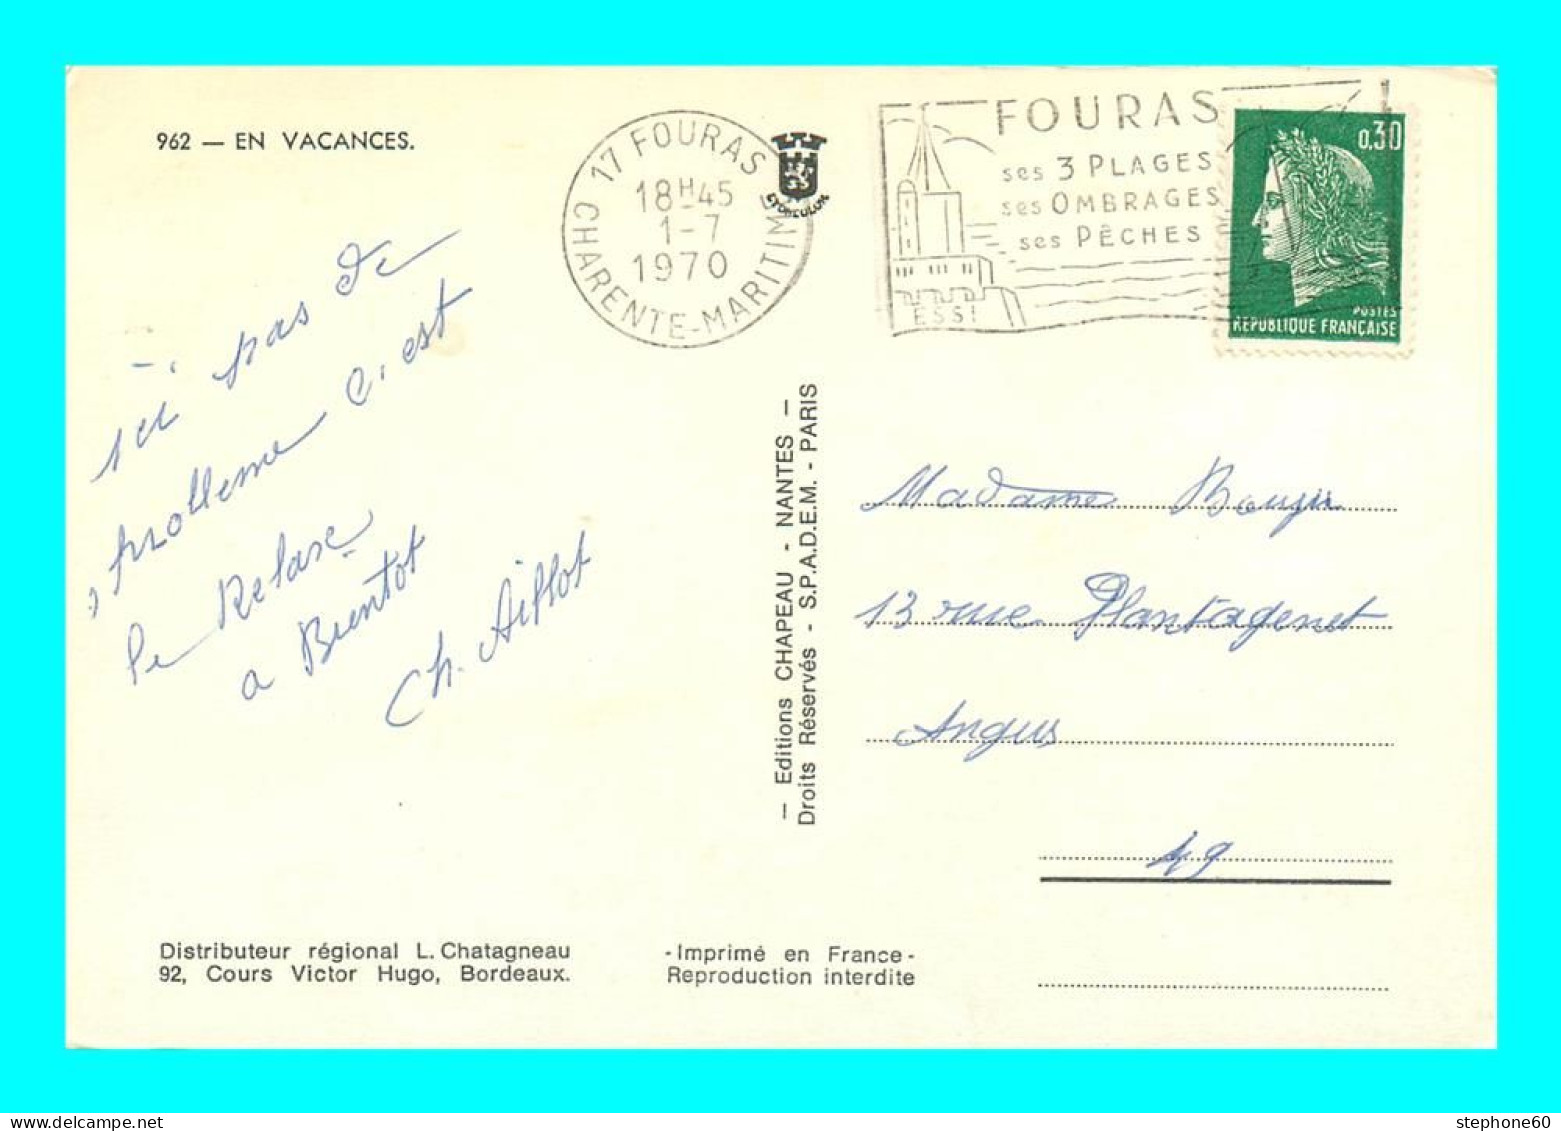 962 — EN VACANCES.
17 FOURAS
18H45
1-7
1970
CHARENTE-MARITIME
FOURAS
ses 3 PLAGES
ses OMBRAGES
ses PÊCHES
0,30
POSTES
REPUBLIQUE FRANÇAISE
ici pas de
problleme c'est
le Relaxe
a Bientot
Ch. Aillot
— Editions CHAPEAU - NANTES —
Droits Réservés - S.P.A.D.E.M. - PARIS
Madame
13 rue Plantagenet
Angers
49
Distributeur régional L. Chatagneau
92, Cours Victor Hugo, Bordeaux.
- Imprimé en France -
Reproduction interdite
stephone60